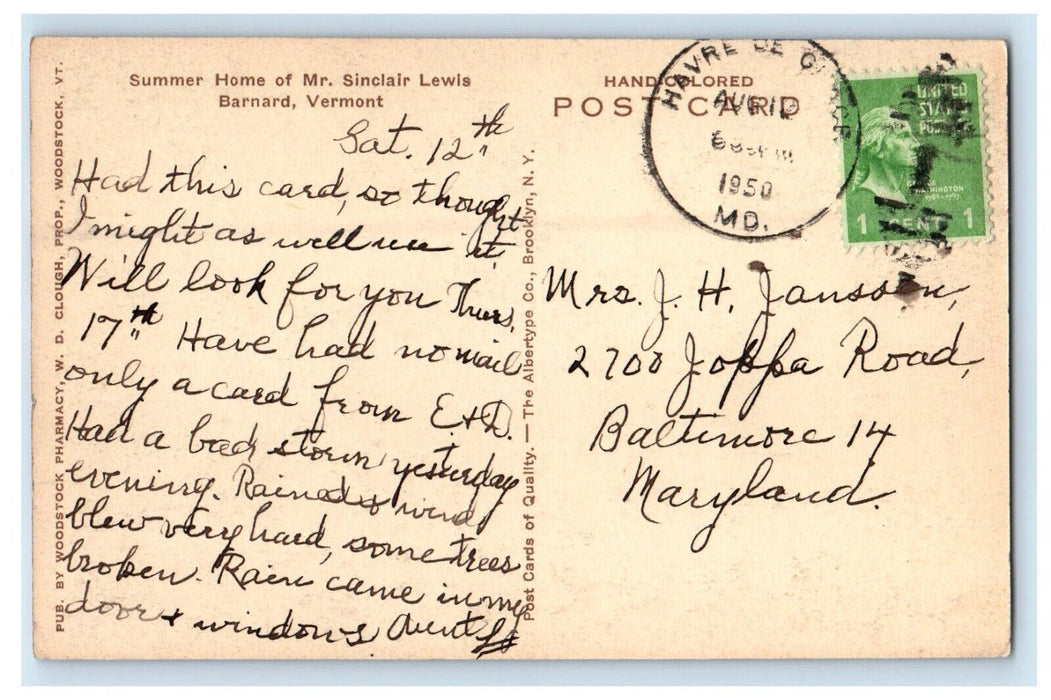 Summer Home of Mr. Sinclair Lewis
Barnard, Vermont
Sat. 12th
Had this card, so thought
I might as well use it.
Will look for you Thurs.
17th Have had no mail
only a card from E + D.
Had a bad storm yesterday
evening. Rained & wind
blew very hard, some trees
broken. Rain came in my
door + windows. Aunt
PUB. BY WOODSTOCK PHARMACY, W. D. CLOUGH, PROP., WOODSTOCK, VT.
Post Cards of Quality. — The Albertype Co., Brooklyn, N. Y.
HAND-COLORED
POST CARD
HAVRE DE
AUG 12
1950
MD.
UNITED
STATES
POSTAGE
GEORGE
WASHINGTON
1789-1797
1 CENT 1
Mrs. J. H. Janssen,
2700 Joppa Road,
Baltimore 14
Maryland.